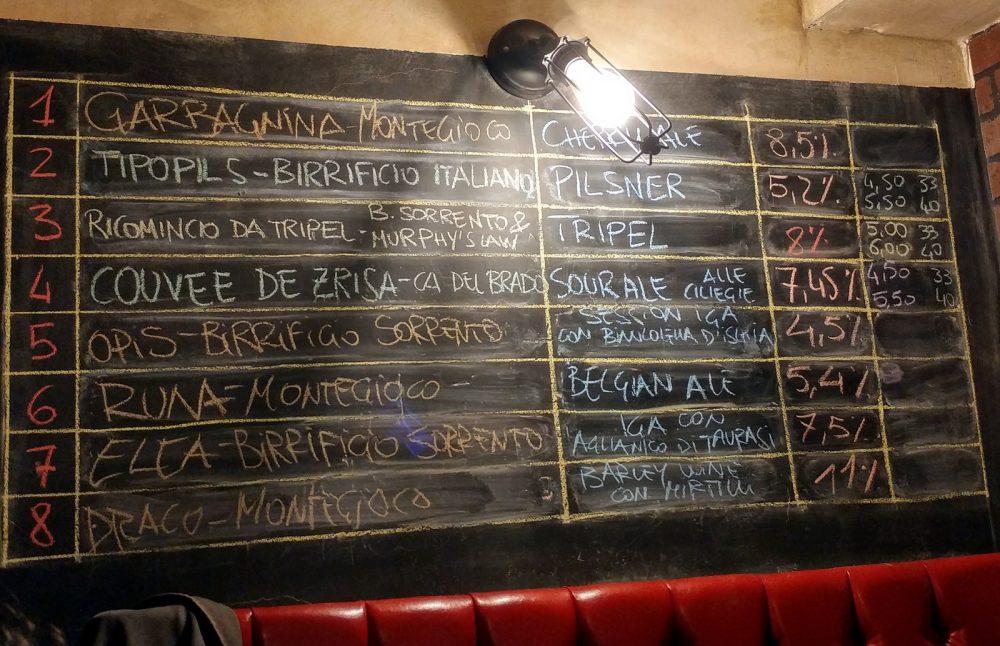 1 GARBAGNINA-MONTEGIOCO CHERRY ALE 8,5%
2 TIPOPILS-BIRRIFICIO ITALIANO PILSNER 5,2% 4,50 33
5,50 40
3 RICOMINCIO DA TRIPEL- B. SORRENTO & MURPHY'S LAW TRIPEL 8% 5,00 33
6,00 40
4 COUVEE DE ZRISA-CA DEL BRADO SOUR ALE ALLE CILIEGIE 7,45% 4,50 33
5,50 40
5 OPIS-BIRRIFICIO SORRENTO SESSION IGA
CON BIANCOLELLA D'ISCHIA 4,5%
6 RUNA-MONTEGIOCO- BELGIAN ALE 5,4%
7 ELEA-BIRRIFICIO SORRENTO IGA CON
AGLIANICO DI TAURASI 7,5%
8 DRACO-MONTEGIOCO BARLEY WINE
CON MIRTILLI 11%